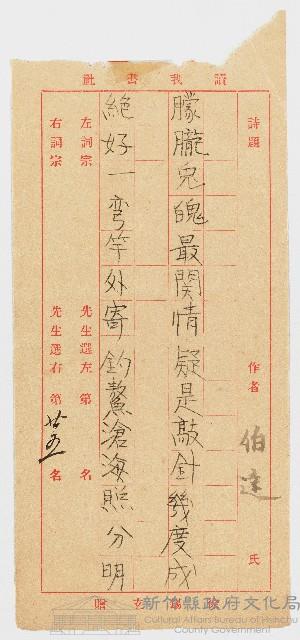 讀我書社
詩題 作者 伯達 氏
朦朧兔魄最関情疑是敲針幾度成
絕好一彎竿外寄釣鰲滄海照分明
左詞宗 先生選左第 名
右詞宗 先生選右第廿五名
贈
新竹縣政府文化局
Cultural Affairs Bureau of Hsinchu
County Government